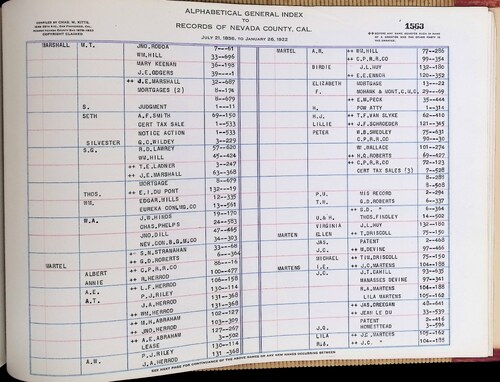 ALPHABETICAL GENERAL INDEX
TO
RECORDS OF NEVADA COUNTY, CAL.
JULY 21, 1856, TO JANUARY 26, 1922
COPYRIGHT CLAIMED
1563
MARSHALL M.T. JNO. RODDA 7—61
WM. HILL 33—696
MARY KEENAN 36—198
J.E. ODGERS 39—1
++ J.E. MARSHALL 32—687
MORTGAGES (2) 8—174
8—679
S. JUDGMENT 1—11
SETH A.F. SMITH 69—150
CERT TAX SALE 1—533
NOTICE ACTION 1—533
SILVESTER G.C. WILDEY 3—229
S.G. R.D. LAWREY 57—620
WM. HILL 45—424
++ T.E. LADNER 3—247
++ J.E. MARSHALL 63—368
MORTGAGE 8—679
THOS. ++ E.I. DU PONT 132—19
WM. EDGAR MILLS 12—335
EUREKA CON. MG. CO 13—561
W.A. J.N. HINDS 19—170
CHAS. PHELPS 24—583
JNO. DILL 47—465
NEV. CON. S.Q.M. CO 34—303
++ S.N. STRANAHAN 33—68
++ G.D. ROBERTS 6—364
MARTEL ++ C.P.R.R. CO 86—16
ALBERT ++ N. HERROD 100—477
ANNIE ++ L.F. HERROD 106—158
A.E. P.J. RILEY 130—114
A.T. J.A. HERROD 131—368
++ WM. HERROD 131—368
++ M.H. ABRAHAM 102—127
++ JNO. HERROD 103—309
++ A.E. ABRAHAM 127—267
LEASE 3—502
P.J. RILEY 130—114
A.W. J.A. HERROD 131—368
MARTEL A.W. ++ WM. HILL 77—286
++ C.P.R.R. CO 99—354
BIRDIE J.L. HUY 132—180
++ E.E. ENNOR 120—352
ELIZABETH MORTGAGE 13—22
F. MOHAWK & MONT. C. M. CO 29—69
++ E.M. PECK 35—444
H. POW ATTY 1—314
H.J. ++ T.P. VAN SLYKE 62—410
LILLIE ++ J.F. SCHROEDER 121—365
PETER W.B. SMEDLEY 75—631
C.P.R.R. CO 90—30
WM. WALLACE 101—274
++ H.G. ROBERTS 69—427
++ C.P.R.R. CO 72—123
CERT TAX SALES (3) 7—528
8—288
8—508
P.U. MIS RECORD 2—294
T.H. G.D. ROBERTS 6—337
++ G.D. " 6—364
U. & H. THOS. FINDLEY 14—502
VIRGINIA J.L. HUY 132—180
MARTEN ELLEN ++ T. DRISCOLL 75—150
JAS. PATENT 2—468
J.C. ++ M. DEVINE 97—466
MICHAEL ++ TIM. DRISCOLL 75—150
MARTENS I.E. ++ J.C. MARTENS 104—188
J.C. J.T. CAHILL 93—635
MANASSES DEVINE 97—341
R.A. MARTENS 104—188
LILA MARTENS 105—162
++ JAS. CREEGAN 48—641
++ JEAN LE DU 33—539
PATENT 2—416
J.G. HOMESTEAD 3—596
LILA ++ J.C. MARTENS 105—162
R.A. ++ J.C. " 104—188